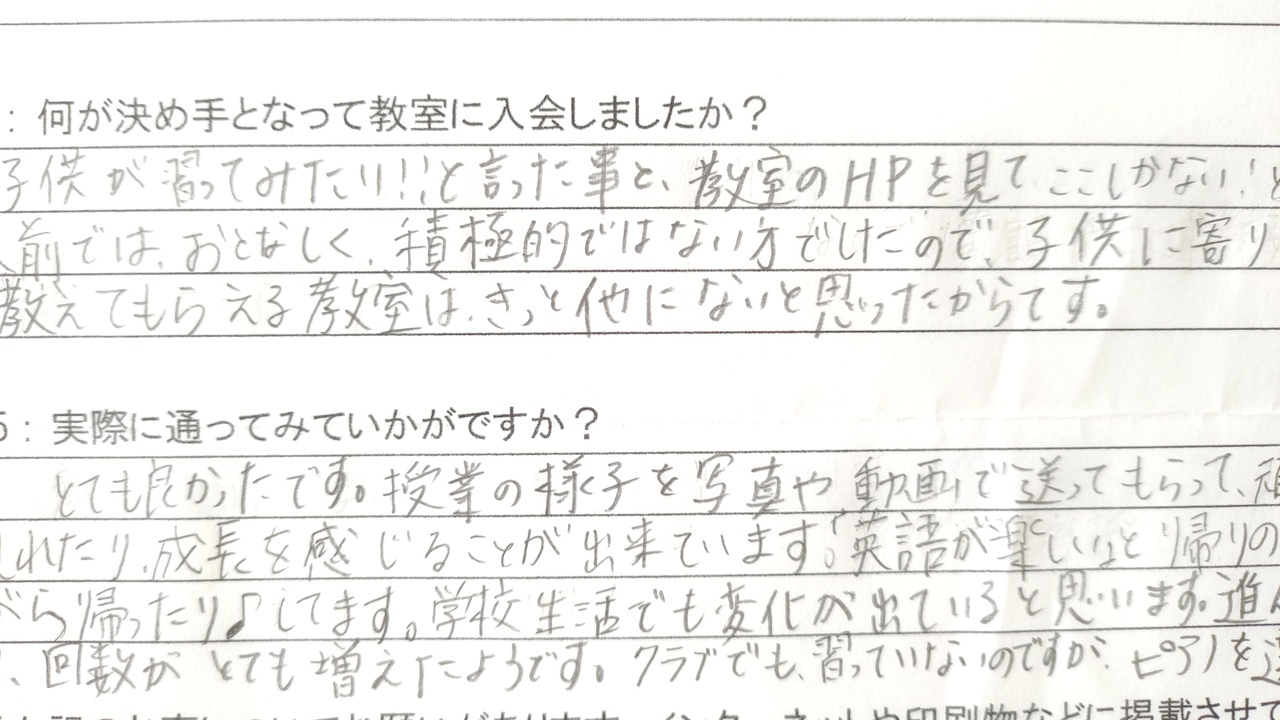 : 何が決め手となって教室に入会しましたか？
子供が習ってみたい!!と言った事と、教室のHPを見てここしかない!と
前では、おとなしく、積極的ではない方でしたので、子供に寄り
教えてもらえる教室は、きっと他にないと思ったからです。
5: 実際に通ってみていかがですか？
とても良かったです。授業の様子を写真や動画で送ってもらって、頑
れたり、成長を感じることが出来ています!「英語が楽しい」と帰りの
がら帰ったり♪してます。学校生活でも変化が出ていると思います。進ん
、回数がとても増えたようです。クラブでも、習っていないのですが、ピアノを
についてお願いがあります インターネットや印刷物などに掲載させて